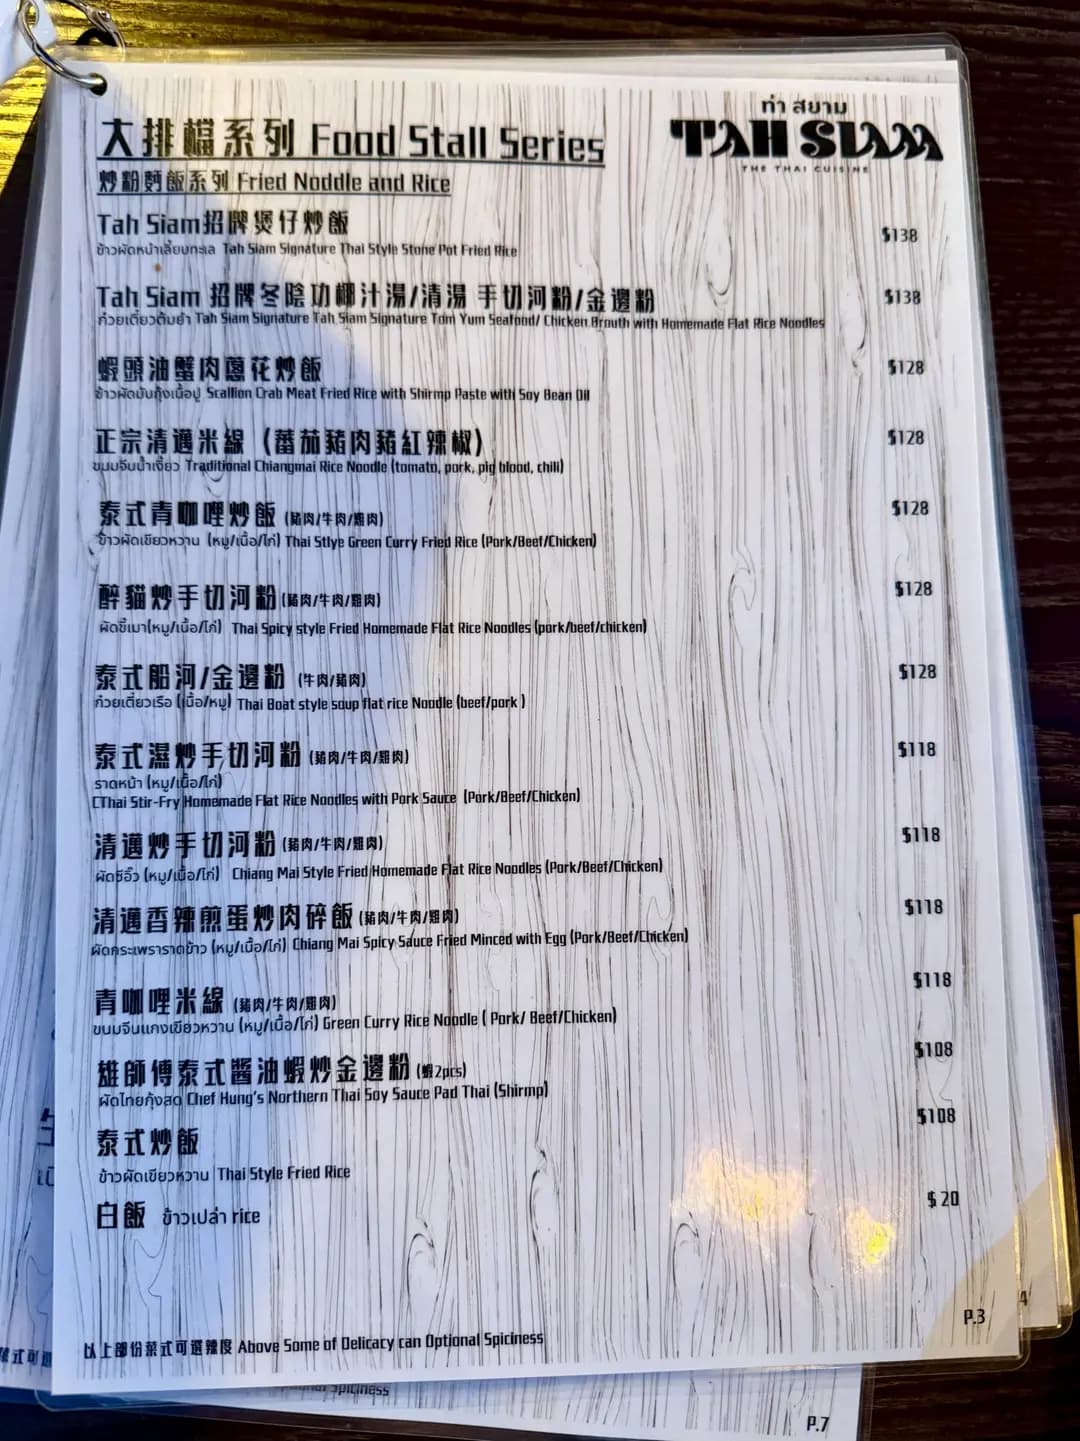 ท่า สยาม
TAH SIAM
THE THAI CUISINE
大排檔系列 Food Stall Series
炒粉麪飯系列 Fried Noddle and Rice
Tah Siam招牌煲仔炒飯 $138
ข้าวผัดหน้าเลี้ยบทะเล Tah Siam Signature Thai Style Stone Pot Fried Rice
Tah Siam 招牌冬陰功椰汁湯/清湯 手切河粉/金邊粉 $138
ก๋วยเตี่ยวต้มยำ Tah Siam Signature Tah Siam Signature Tom Yum Seafood/ Chicken Brouth with Homemade Flat Rice Noodles
蝦頭油蟹肉蔥花炒飯 $128
ข้าวผัดมันกุ้งเนื้อปู Scallion Crab Meat Fried Rice with Shirmp Paste with Soy Bean Oil
正宗清邁米線 (蕃茄豬肉豬紅辣椒) $128
ขนมจีนน้ำเงี้ยว Traditional Chiangmai Rice Noodle (tomato, pork, pig blood, chili)
泰式青咖喱炒飯 (豬肉/牛肉/雞肉) $128
ข้าวผัดเขียวหวาน (หมู/เนื้อ/ไก่) Thai Stlye Green Curry Fried Rice (Pork/Beef/Chicken)
醉貓炒手切河粉 (豬肉/牛肉/雞肉) $128
ผัดขี้เมา(หมู/เนื้อ/ไก่) Thai Spicy style Fried Homemade Flat Rice Noodles (pork/beef/chicken)
泰式船河/金邊粉 (牛肉/豬肉) $128
ก๋วยเตี่ยวเรือ (เนื้อ/หมู) Thai Boat style soup flat rice Noodle (beef/pork )
泰式濕炒手切河粉 (豬肉/牛肉/雞肉) $118
ราดหน้า (หมู/เนื้อ/ไก่)
CThai Stir-Fry Homemade Flat Rice Noodles with Pork Sauce (Pork/Beef/Chicken)
清邁炒手切河粉 (豬肉/牛肉/雞肉) $118
ผัดซีอิ๊ว (หมู/เนื้อ/ไก่) Chiang Mai Style Fried Homemade Flat Rice Noodles (Pork/Beef/Chicken)
清邁香辣煎蛋炒肉碎飯 (豬肉/牛肉/雞肉) $118
ผัดกระเพราราดข้าว (หมู/เนื้อ/ไก่) Chiang Mai Spicy Sauce Fried Minced with Egg (Pork/Beef/Chicken)
青咖喱米線 (豬肉/牛肉/雞肉) $118
ขนมจีนแกงเขียวหวาน (หมู/เนื้อ/ไก่) Green Curry Rice Noodle ( Pork/ Beef/Chicken)
雄師傅泰式醬油蝦炒金邊粉 (蝦2pcs) $108
ผัดไทยกุ้งสด Chef Hung's Northern Thai Soy Sauce Pad Thai (Shirmp)
泰式炒飯 $108
ข้าวผัดเขียวหวาน Thai Style Fried Rice
白飯 ข้าวเปล่า rice $ 20
以上部份菜式可選辣度 Above Some of Delicacy can Optional Spiciness
P.3
4
Spiciness
P.7